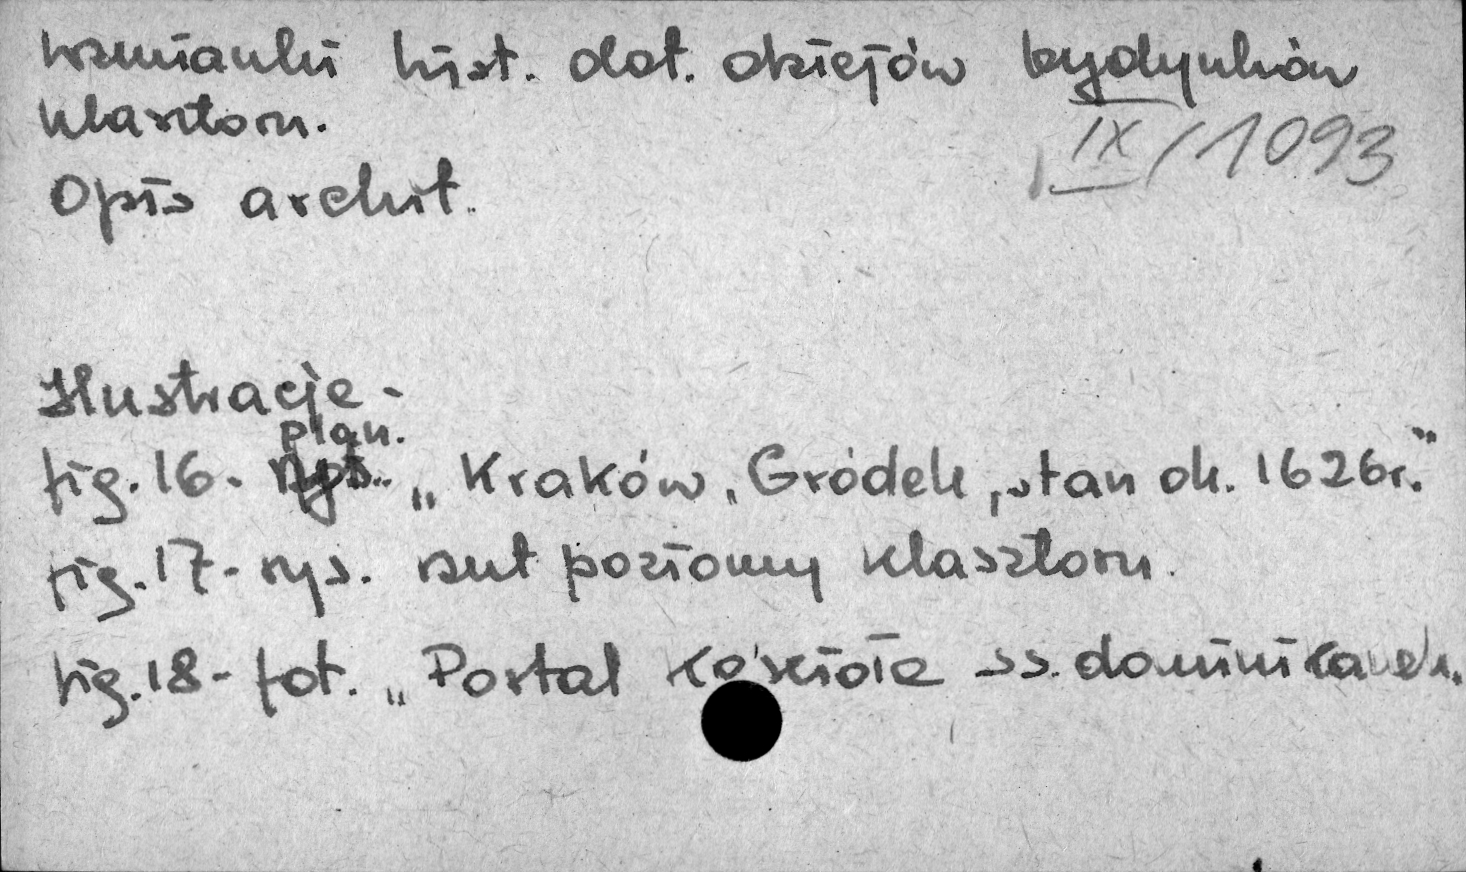 wzmianki hist. dot. dziejów budynków
klasztoru.
IX/1093
Opis archit.
Ilustracje -
plan.
fig. 16 - rys. „Kraków, Gródek, stan ok. 1626r."
fig. 17 - rys. rzut poziomy klasztoru.
fig. 18 - fot. „Portal kościoła ss. dominikanek.